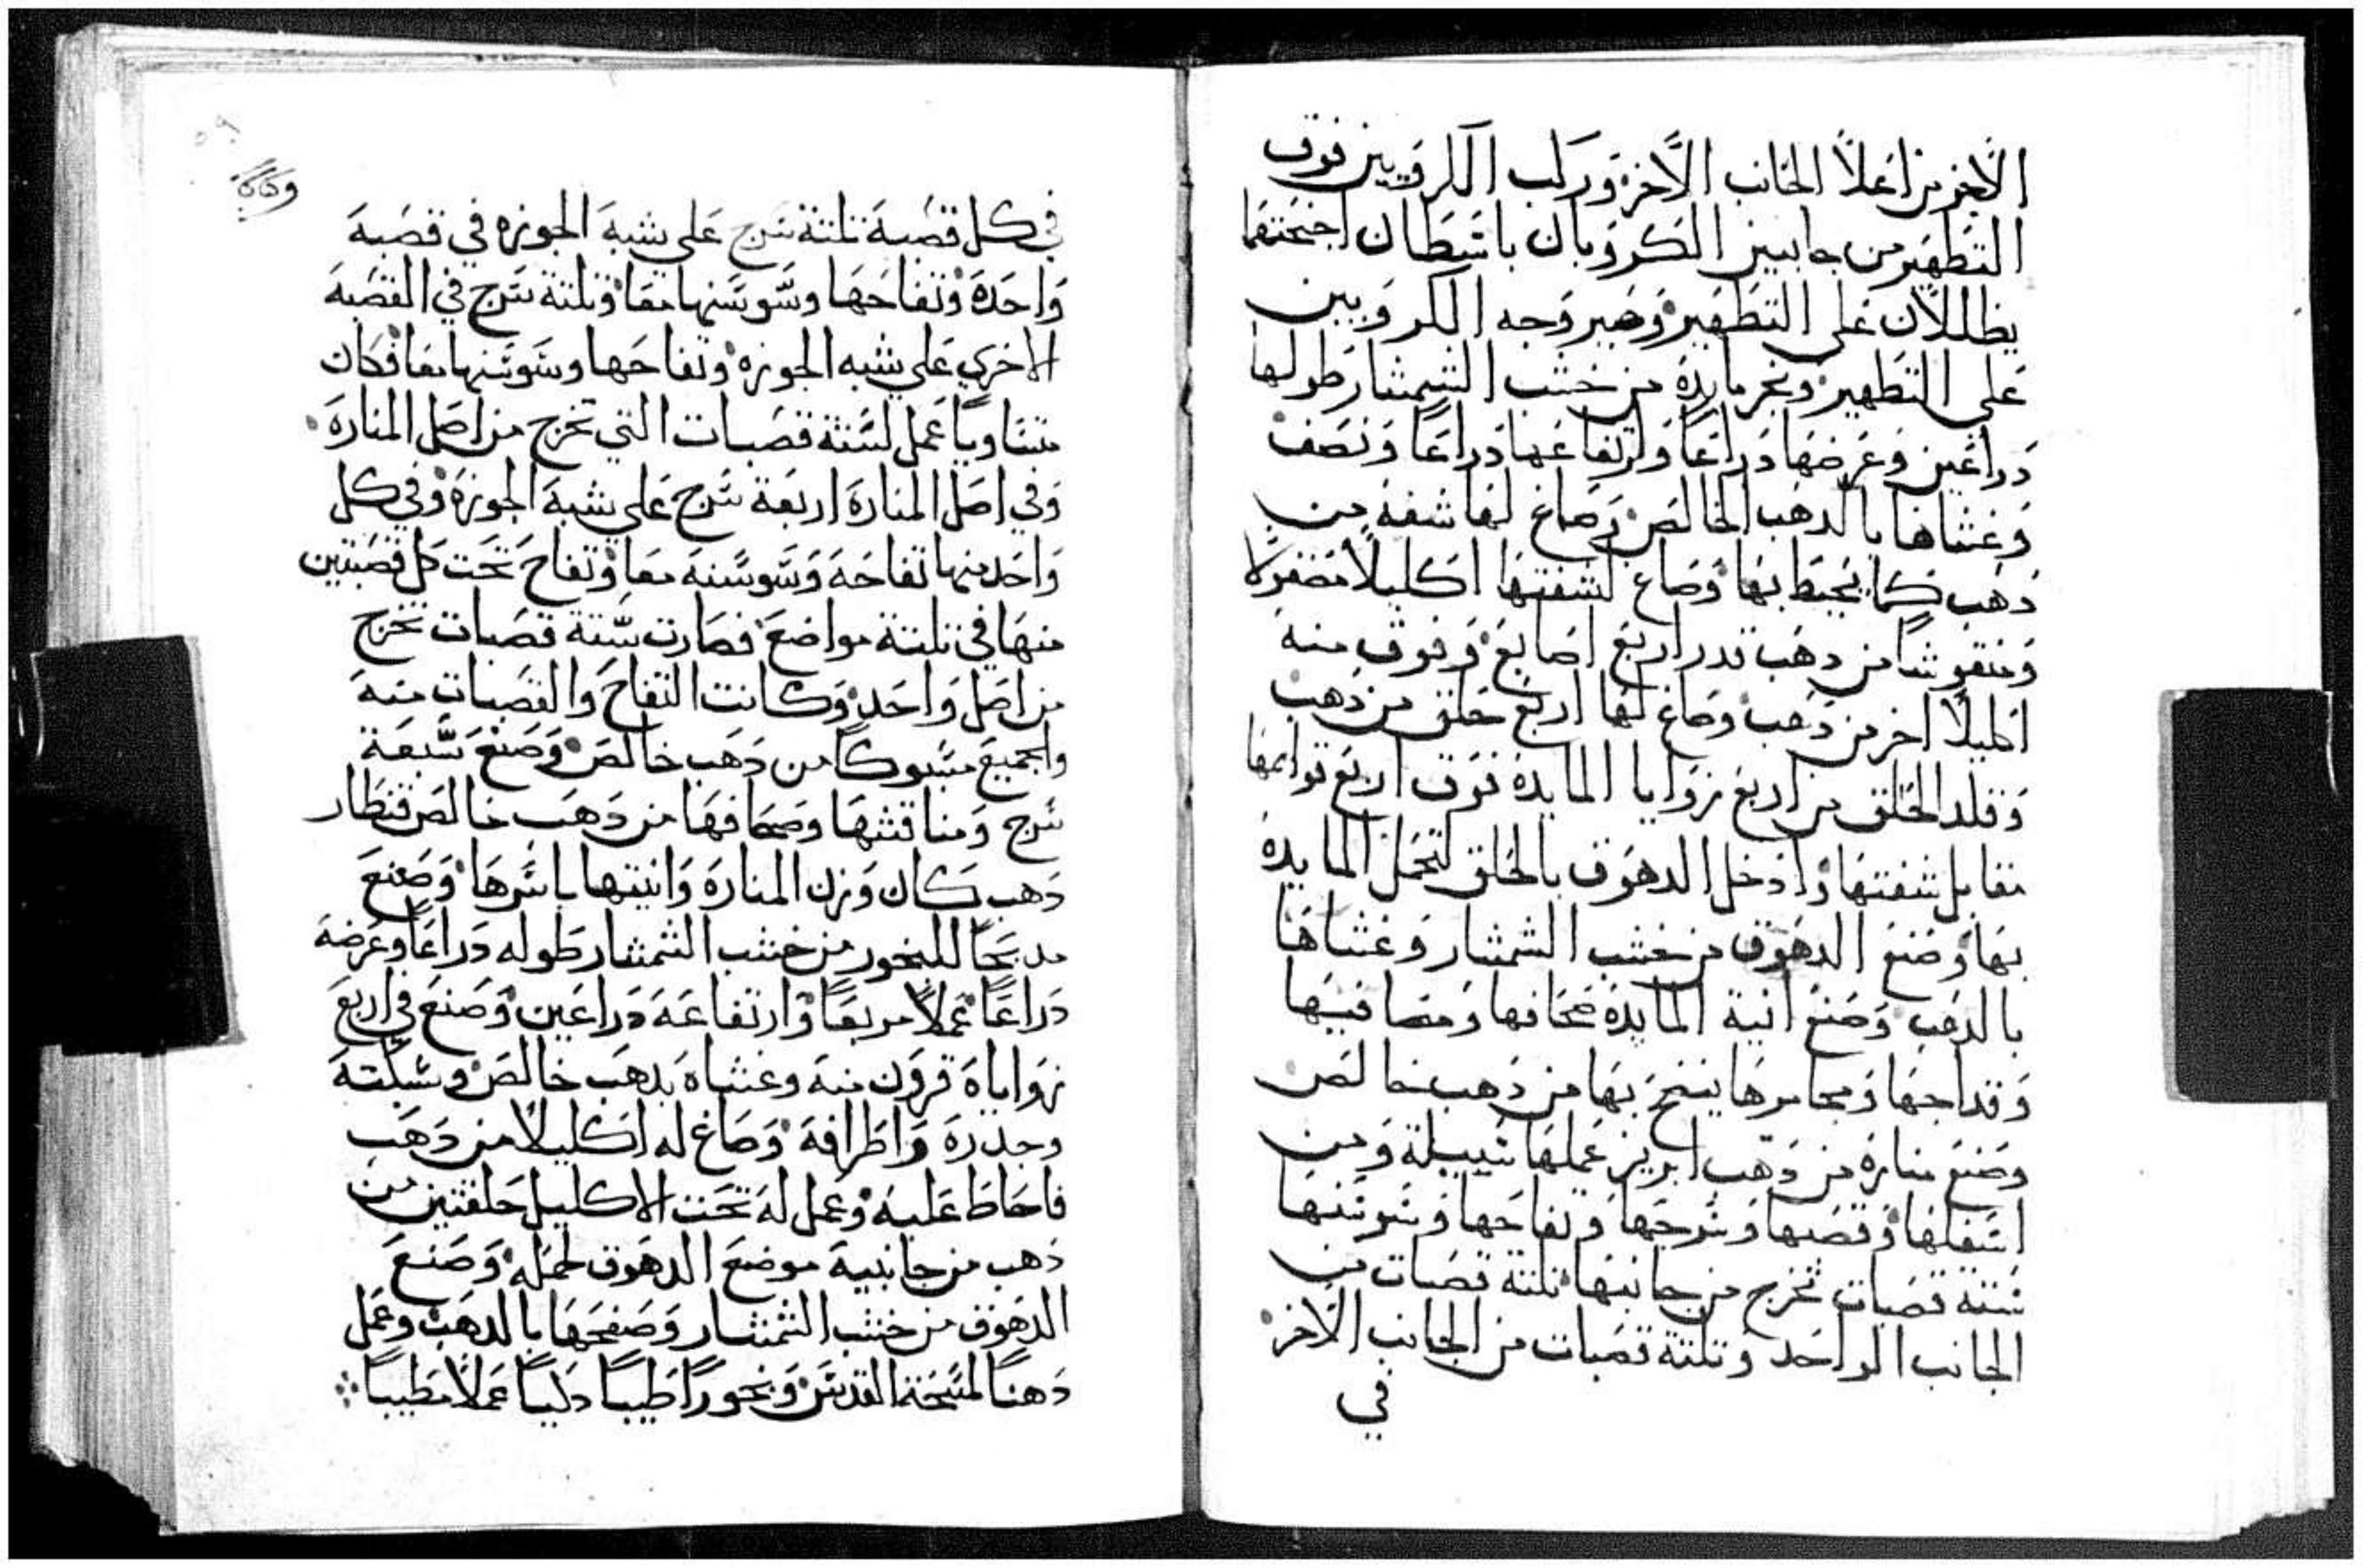 الاخر من اعلا الجانب الاخر وركب الكروبين فوق
التطهير من جانبين الكروبان باسطان اجنحتهما
يظللان على التطهير وصير وجه الكروبين
على التطهير ونجر مايدة من خشب الشمشار طولها
دراعين وعرضها دراعا وارتفاعها دراعا ونصف
وغشاها بالدهب الخالص وصاغ لها شفة من
دهب كما يحيط بها وصاغ لشفتها اكليلا مضفورا
ومنقوشا من دهب قدر اربع اصابع وفوق منه
اكليلا اخر من دهب وصاغ لها اربع حلق من دهب
وقلد الحلق من اربع زوايا المايدة فوق اربع قوايمها
مقابل شفتها وادخل الدهوق بالحلق لتحمل المايدة
بها وصنع الدهوق من خشب الشمشار وغشاها
بالدهب وصنع انية المايدة صحافها ومصافيها
وقداحها ومجامرها ينضح بها من دهب خالص
وصنع منارة من دهب ابريز عملها سبيلة ومن
اسفلها وقصبها وسرجها وتفاحها وسوسنها
ستة قصبات تخرج من جانبها تلتة قصبات من
الجانب الواحد وتلتة قصبات من الجانب الاخر
في
وكاكا
٥٩
في كل قصبة تلتة سرج على شبه الجوزه في قصبة
واحدة وتفاحها وسوسنها معا وتلتة سرج في القصبة
الاخري على شبه الجوزه وتفاحها وسوسنها معا فكان
متساويا عمل لستة قصبات التي تخرج من اصل المنارة
وفي اصل المنارة اربعة سرج على شبه الجوزة وفي كل
واحد منها تفاحة وسوسنة معا وتفاح تحت كل قصبتين
منها في تلتة مواضع فصارت ستة قصبات تخرج
من اصل واحد وكانت التفاح والقصبات منه
والجميع مسبوكا من دهب خالص وصنع سبعة
سرج ومناقشها وصحافها من دهب خالص قنطار
دهب كان وزن المنارة وانيتها باسرها وصنع
مدبحا للبخور من خشب الشمشار طوله دراعا وعرضه
دراعا عملا مربعا وارتفاعه دراعين وصنع في اربع
زواياه قرون منه وغشاه بدهب خالص وشبكته
وجدره واطرافه وصاغ له اكليلا من دهب
فاحاط عليه وعمل له تحت الاكليل حلقتين من
دهب من جانبيه موضع الدهوق لحمله وصنع
الدهوق من خشب الشمشار وصفحها بالدهب وعمل
دهنا لمسحة القدس وبخورا طيبا دكيا عملا مطيبا